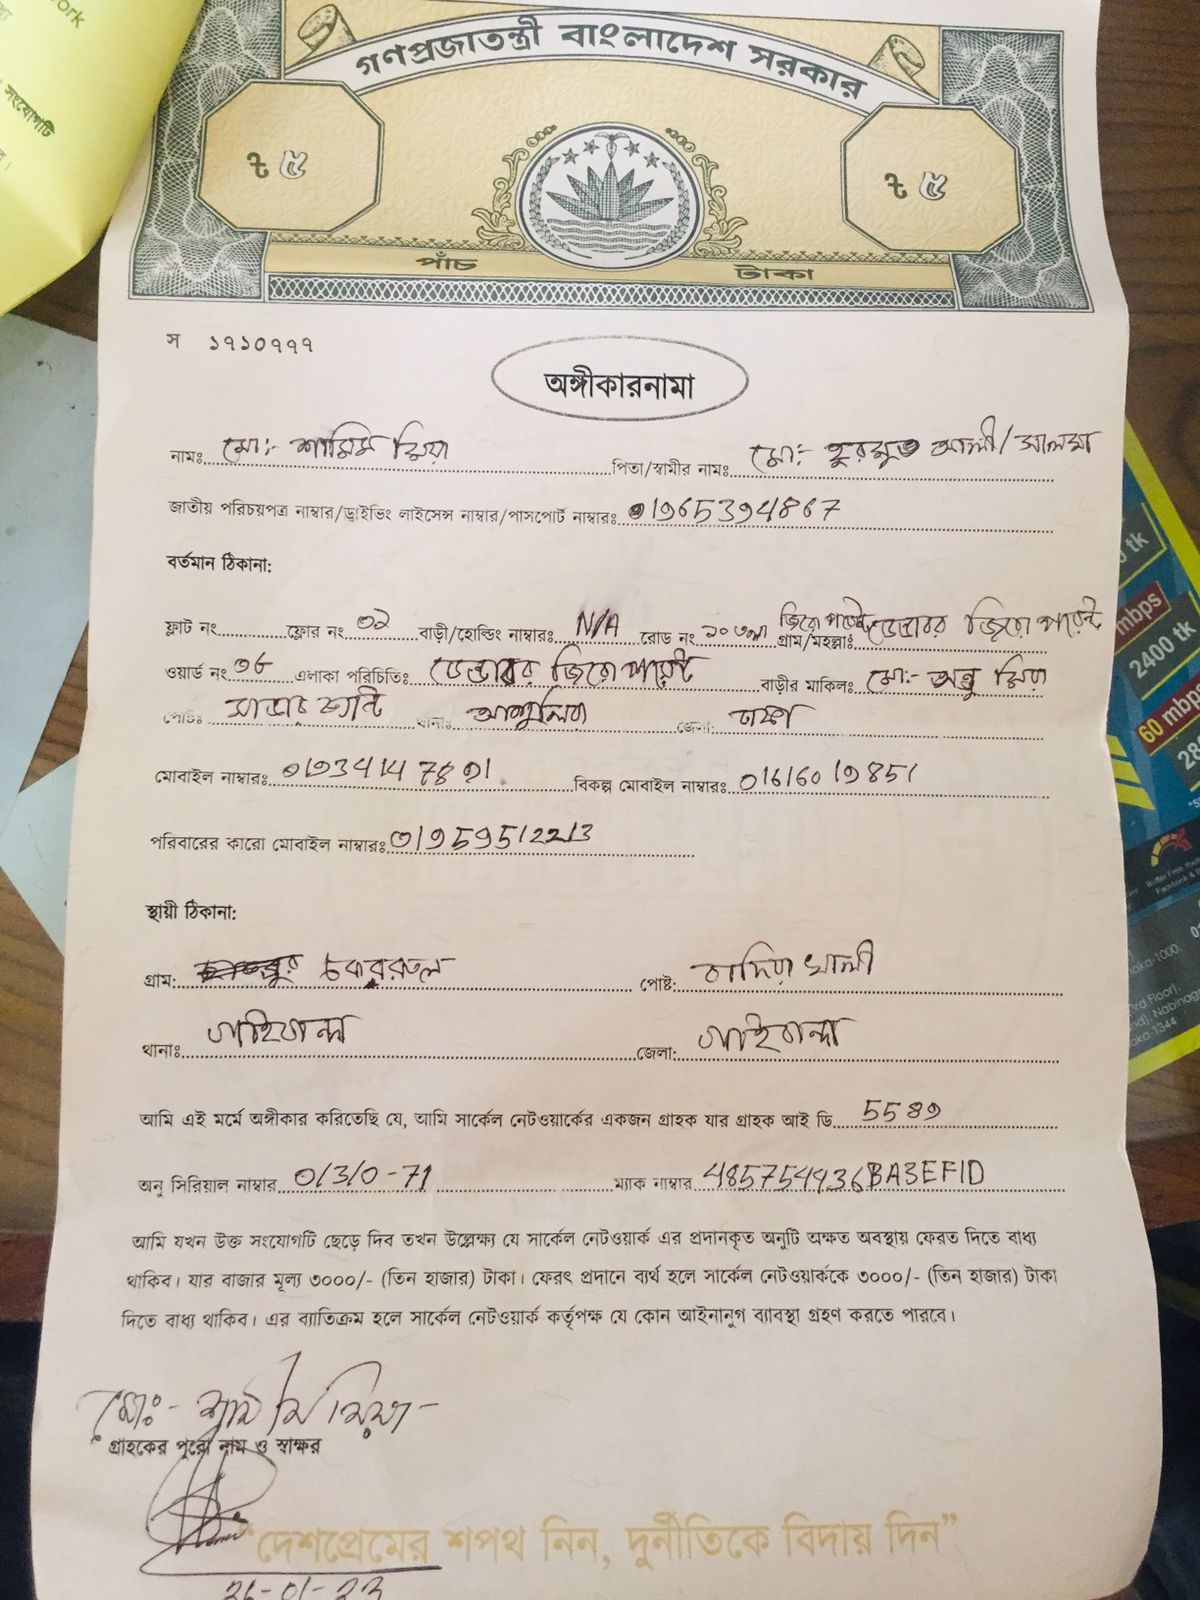 ork
সংযোগটি
গণপ্রজাতন্ত্রী বাংলাদেশ সরকার
৳ ৫ ৳ ৫
পাঁচ টাকা
স ১৭১০৭৭৭
অঙ্গীকারনামা
নামঃ মো:- শামিম মিয়া পিতা/স্বামীর নামঃ মো:- আলী/
জাতীয় পরিচয়পত্র নাম্বার/ড্রাইভিং লাইসেন্স নাম্বার/পাসপোর্ট নাম্বারঃ 01965394867
বর্তমান ঠিকানা:
ফ্লাট নং ফ্লোর নং ০২ বাড়ী/হোল্ডিং নাম্বারঃ N/A রোড নং গ্রাম/মহল্লাঃ জিরো পয়েন্ট ডেন্ডাবর জিরো পয়েন্ট
ওয়ার্ড নং এলাকা পরিচিতিঃ ডেন্ডাবর জিরো পয়েন্ট বাড়ীর মাকিলঃ মো:- মিয়া
পোষ্টঃ সাভার ক্যান্ট থানাঃ আশুলিয়া জেলা: ঢাকা
মোবাইল নাম্বারঃ বিকল্প মোবাইল নাম্বারঃ
পরিবারের কারো মোবাইল নাম্বারঃ
স্থায়ী ঠিকানা:
গ্রাম: পোষ্ট:
থানাঃ গাইবান্ধা জেলা: গাইবান্ধা
আমি এই মর্মে অঙ্গীকার করিতেছি যে, আমি সার্কেল নেটওয়ার্কের একজন গ্রাহক যার গ্রাহক আই ডি 5589
অনু সিরিয়াল নাম্বার 0/3/0-71 ম্যাক নাম্বার 485754436BA3EF1D
আমি যখন উক্ত সংযোগটি ছেড়ে দিব তখন উল্লেক্ষ্য যে সার্কেল নেটওয়ার্ক এর প্রদানকৃত অনুটি অক্ষত অবস্থায় ফেরত দিতে বাধ্য
থাকিব। যার বাজার মূল্য ৩০০০/- (তিন হাজার) টাকা। ফেরৎ প্রদানে ব্যর্থ হলে সার্কেল নেটওয়ার্ককে ৩০০০/- (তিন হাজার) টাকা
দিতে বাধ্য থাকিব। এর ব্যাতিক্রম হলে সার্কেল নেটওয়ার্ক কর্তৃপক্ষ যে কোন আইনানুগ ব্যাবস্থা গ্রহণ করতে পারবে।
মো:- শামীম মিয়া
গ্রাহকের পুরো নাম ও স্বাক্ষর
“দেশপ্রেমের শপথ নিন, দুর্নীতিকে বিদায় দিন”
26-01-23
tk
mbps
2400 tk
60 mbps
aka-1000.
3rd Floor),
Nabinaga
aka-1344